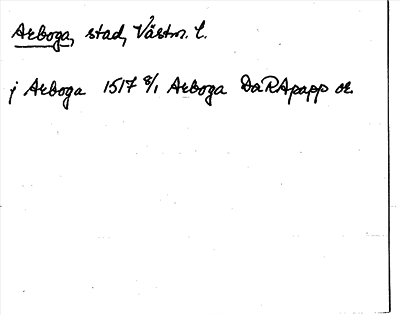 Arboga, stad, Västm. l.
j Arboga 1517 8/1 Arboga DaRApapp or.